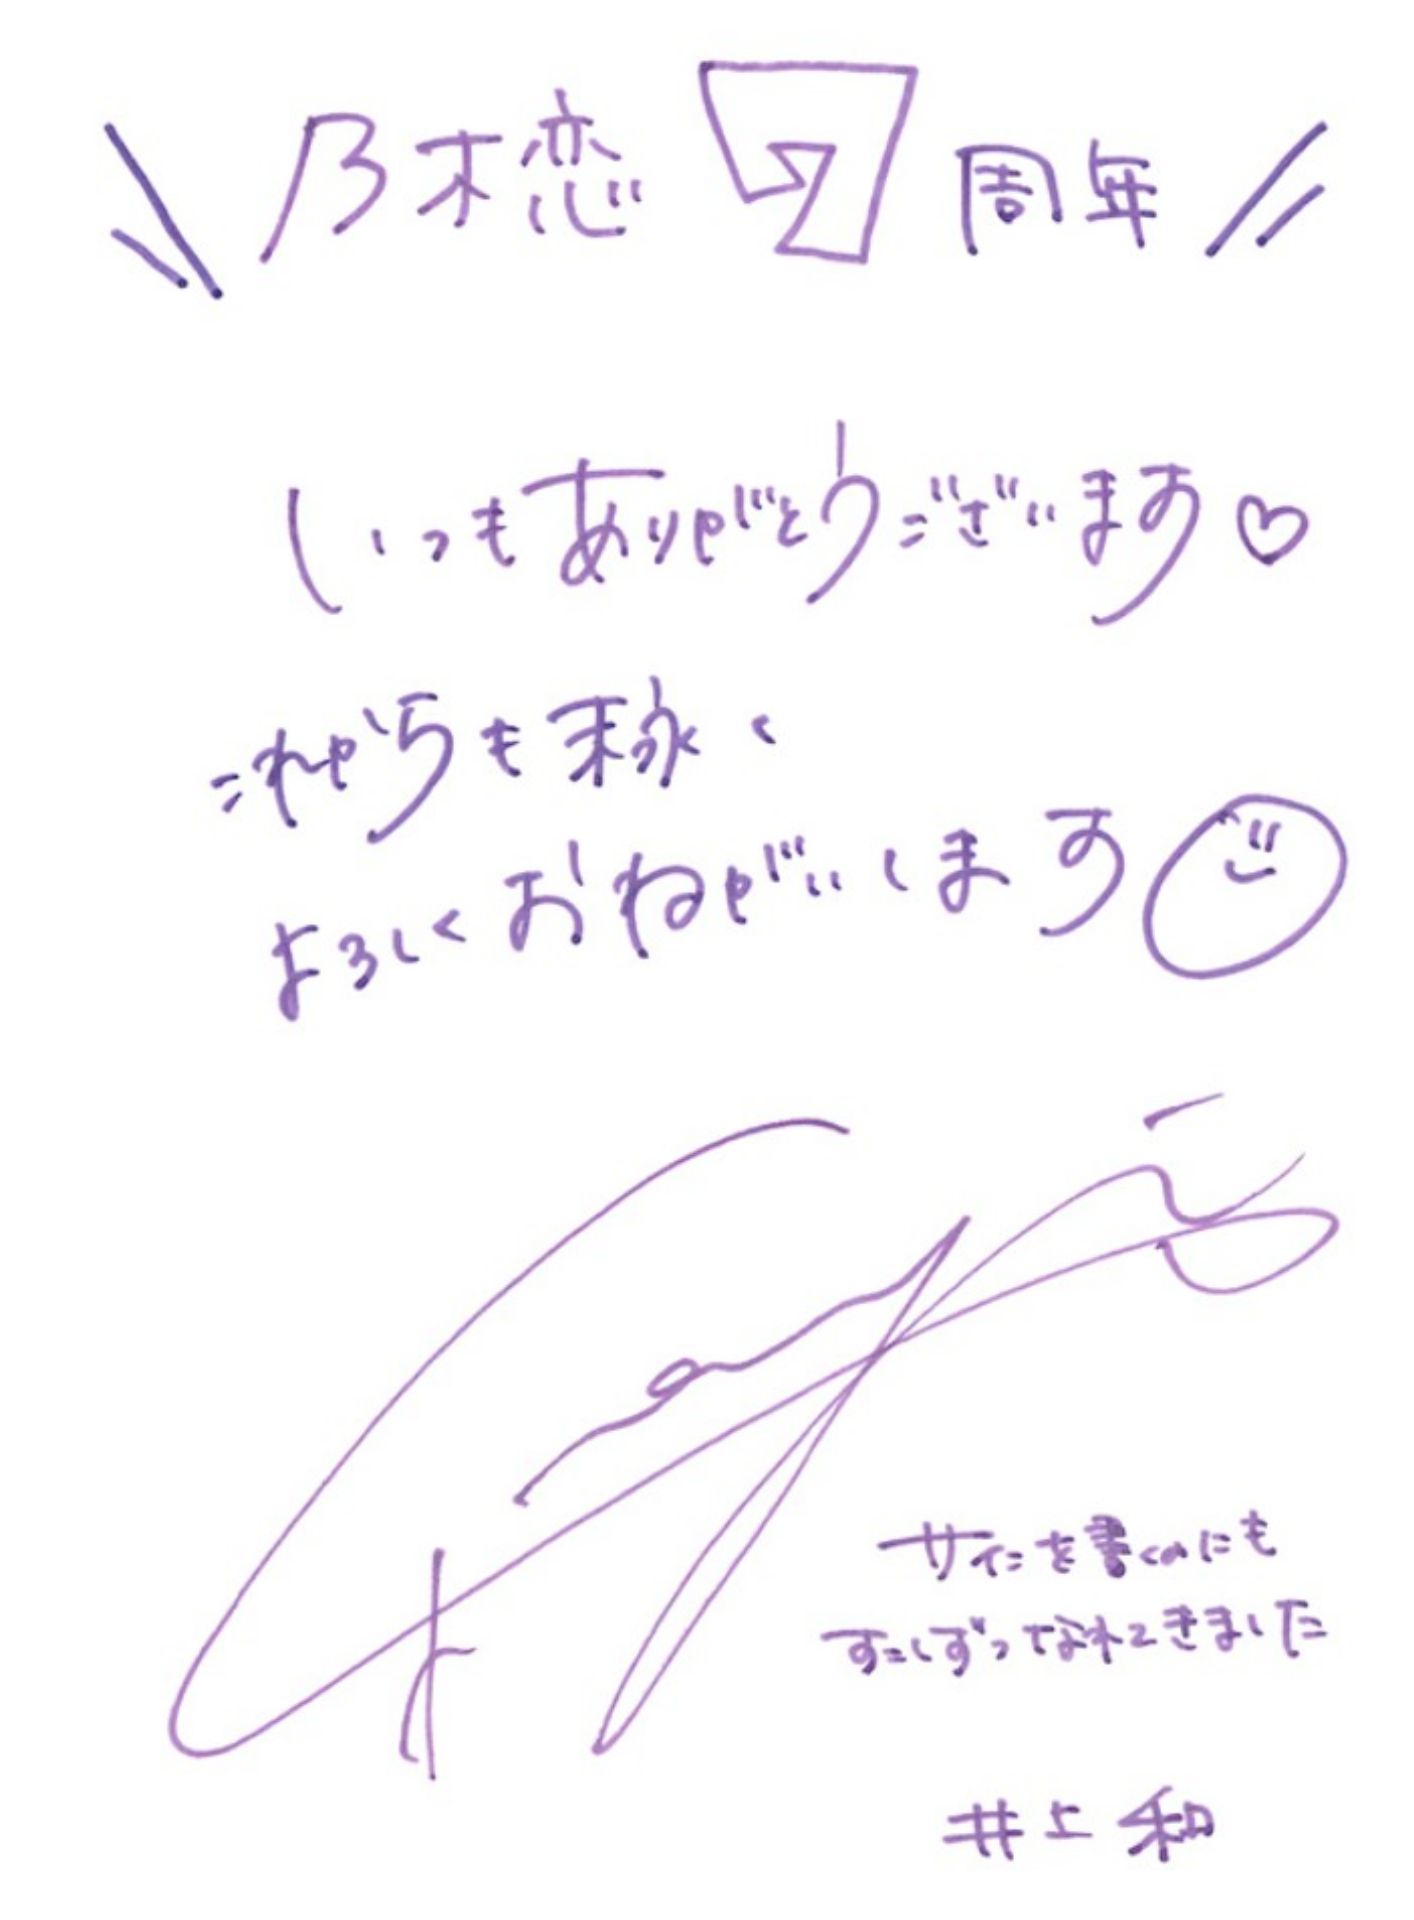 \\ 乃木恋 7周年 //
いつもありがとうございます♡
これからも末永く
よろしくおねがいします
サインを書くのにも
すこしずつなれてきました
井上和